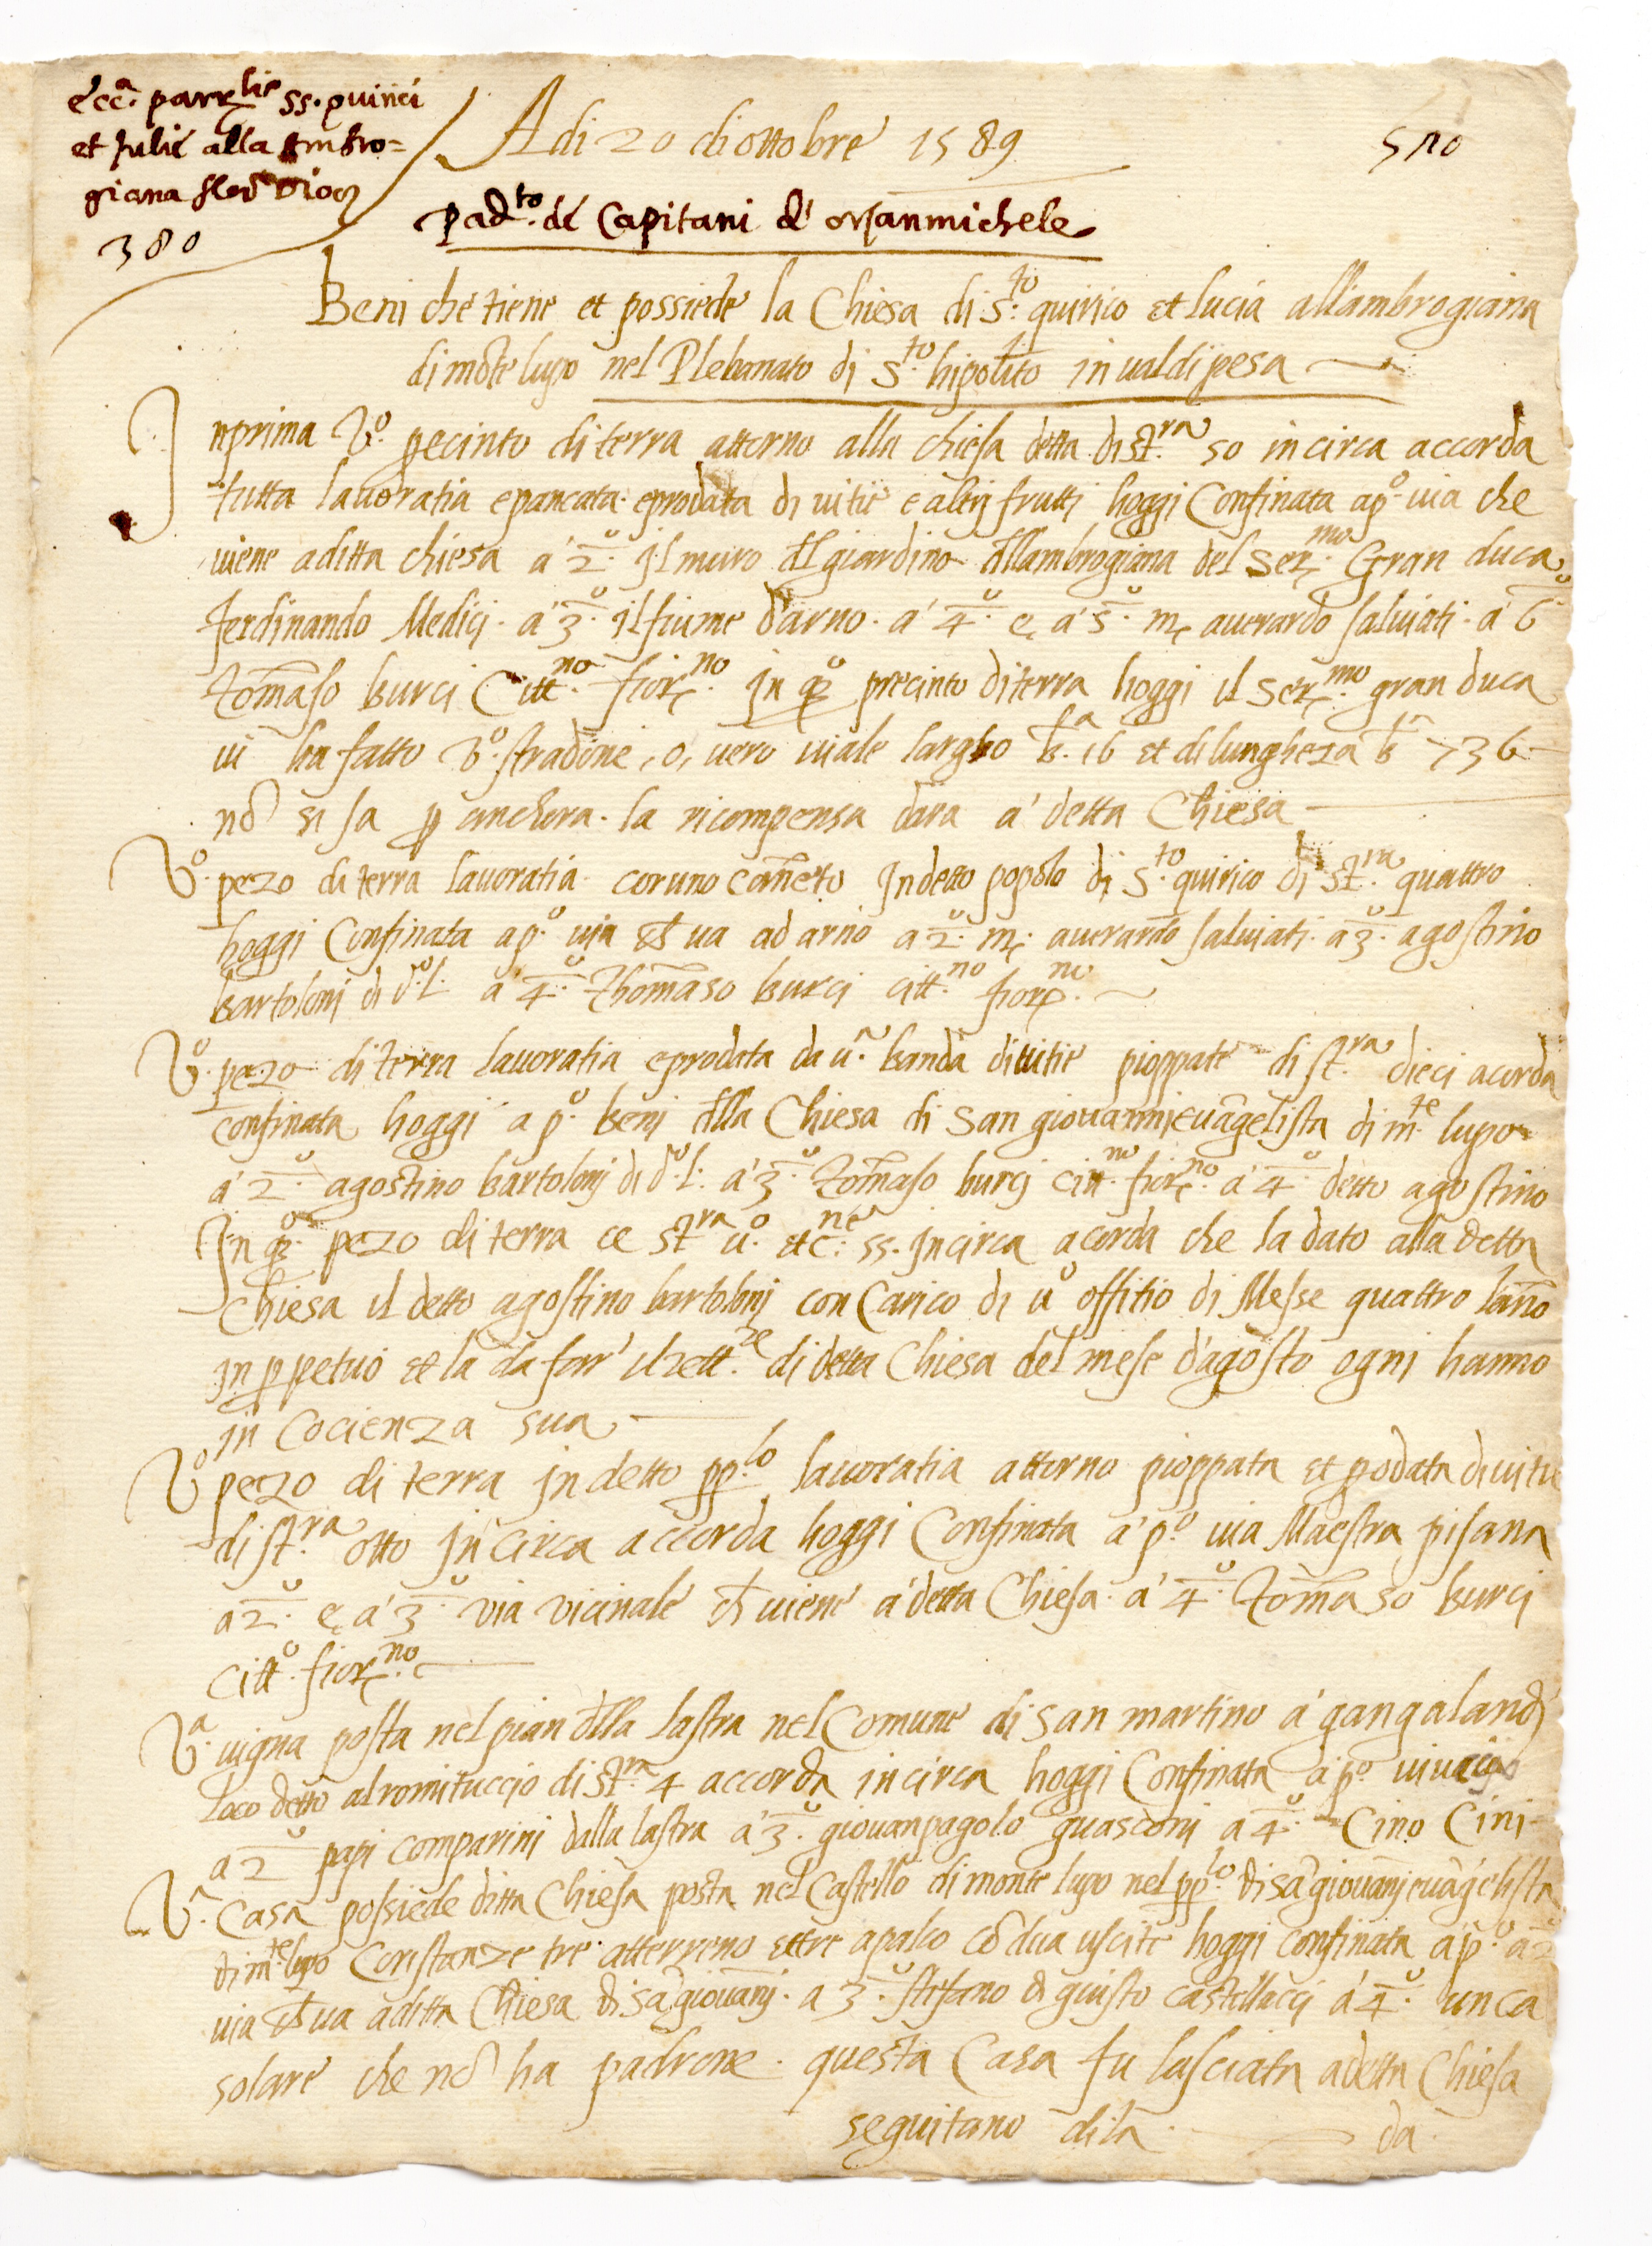 Ecc.ª parr.lis ss. quirici
et Julie alla Ambro=
giana flor. Dioc.
380
Adi 20 di ottobre 1589
510
Padto. de Capitani d' orsanmichele
Beni che tiene et possiede la Chiesa di S.to quirico et lucia all'ambrogiana
di mōtelupo nel Plebanato di S.to hipolito in ualdipesa
Inprima V.o precinto di terra attorno alla chiesa detta di st.ra 50 in circa accorda
tutta lauoratia epancata eprodata di uitie e altrj frutti hoggi Confinata a p.o uia che
uiene a ditta chiesa a' 2.o jl muro dl giardino dllambrogiana del Ser.mo Gran duca
ferdinando Medicj a' 3.o jl fiume d'arno a' 4.o e, a' 5.o m. auerardo saluiati a' 6.o
Tom̄aso burci Citt.no fior.no In q.o precinto di terra hoggi il Ser.mo gran duca
ui ha fatto V.o stradone, o, uero uiale largho b.a 16 et di lungheza b.a 736
nō si sa p anchora la ricompensa dara a' detta Chiesa
V.o pezo di terra lauoratia con uno canneto Jn detto popolo di S.to quirico di st.ra quattro
hoggi Confinata a p.o uia ch ua ad arno a 2.o m. auerardo saluiati a 3.o agostino
bartolonj di d.o l. a' 4.o Thom̄aso burci citt.no fior.no
V.o pezo di terra lauoratia eprodata da u.a banda di uitie pioppate di st.ra dieci acorda
confinata hoggi a p.o benj dlla Chiesa di San giouannj euāgelista di m.te lupo
a' 2.o agostino bartolonj di d.o l. a' 3.o Tom̄aso burcj citt.no fior.no a' 4.o detto agostino
Jn q.o pezo di terra ce st.ra u.o et c.ne ss. jncirca acorda che la dato alla detta
Chiesa il detto agostino bartolonj con Carico di u.o offitio di Messe quattro lan̄o
jn ppetuo et la da farr' il rett.re di detta Chiesa del mese d'agosto ogni hanno
jn Cocienza sua
V.o pezo di terra jn detto pp.lo lauoratia attorno pioppata et prodata di uitie
di st.ra otto Jn circa accorda hoggi Confinata a' p.o uia Maestra pisana
a 2.o e, a' 3.o via vicinale ch uiene a' detta Chiesa a' 4.o Tom̄aso burcj
citt.o fior.no
V.a uigna posta nel pian dlla lastra nel Comune di San martino a' gangalandj
loco detto al romituccio di st.ra 4 accorda in circa hoggi Confinata a p.o
a 2.o papi comparini dalla lastra a' 3.o giouanpagolo guasconj a 4.o Cino Cini
V.a Casa possiede ditta Chiesa posta nel Castello di monte lupo nel pp.lo di sā giouānj euāgelista
di m.te lupo Con stanze tre atterreno et tre a palco cō dua uscite hoggi confinata a p.o a 2.o
uia ch ua a ditta Chiesa di sā giouānj a 3.o stefano di guisto castellaccj a' 4.o un ca
solare che nō ha padrone. questa Casa fu lasciata a detta Chiesa
seguitano di là da